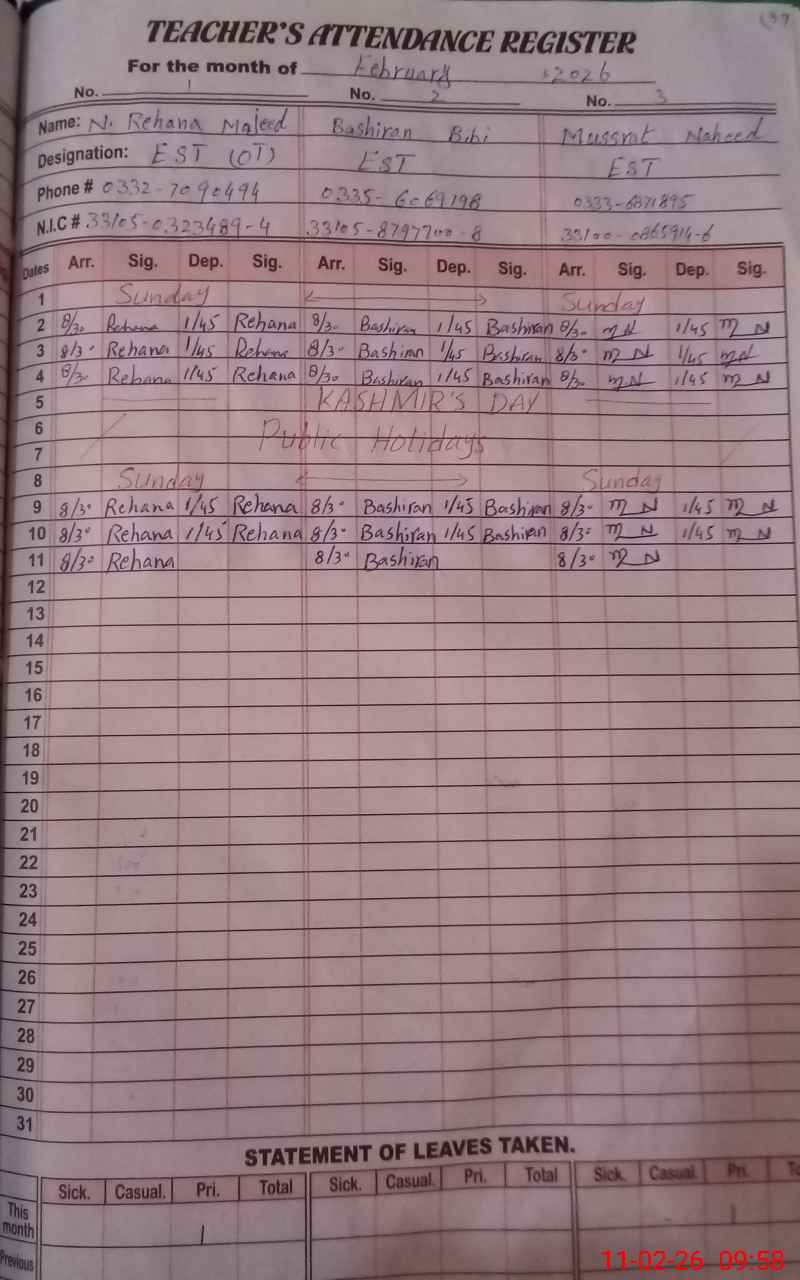 (37
TEACHER'S ATTENDANCE REGISTER
For the month of February 2026
No. 1 No. 2 No. 3
Name: N. Rehana Majeed Bashiran Bibi Mussrat Naheed
Designation: EST (OT) EST EST
Phone # 0332-7090494 0335-6069198 0333-6871895
N.I.C # 33105-0323489-4 33105-8797700-8 33100-0865914-6
Dates Arr. Sig. Dep. Sig. Arr. Sig. Dep. Sig. Arr. Sig. Dep. Sig.
1 Sunday Sunday
2 8/30 Rehana 1/45 Rehana 8/30 Bashiran 1/45 Bashiran 8/30 M N 1/45 M N
3 8/30 Rehana 1/45 Rehana 8/30 Bashiran 1/45 Bashiran 8/30 M N 1/45 M N
4 8/30 Rehana 1/45 Rehana 8/30 Bashiran 1/45 Bashiran 8/30 M N 1/45 M N
5 KASHMIR'S DAY
6 Public Holidays
7
8 Sunday Sunday
9 8/30 Rehana 1/45 Rehana 8/30 Bashiran 1/45 Bashiran 8/30 M N 1/45 M N
10 8/30 Rehana 1/45 Rehana 8/30 Bashiran 1/45 Bashiran 8/30 M N 1/45 M N
11 8/30 Rehana 8/30 Bashiran 8/30 M N
12
13
14
15
16
17
18
19
20
21
22
23
24
25
26
27
28
29
30
31
STATEMENT OF LEAVES TAKEN.
Sick. Casual. Pri. Total Sick. Casual. Pri. Total Sick. Casual. Pri. To
This month 1 1
Previous
11-02-26 09:58